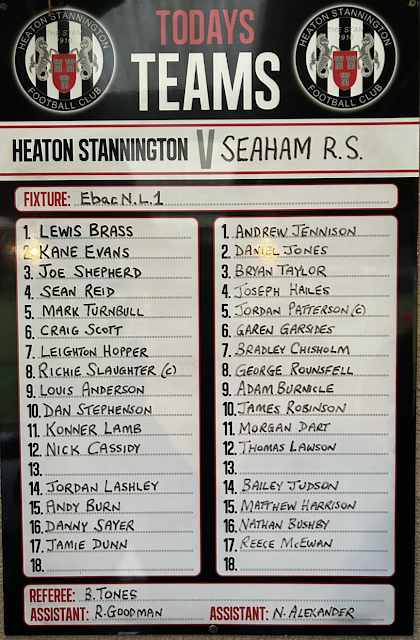 HEATON STANNINGTON THE STAN 1910 FOOTBALL CLUB
TODAYS
TEAMS
HEATON STANNINGTON THE STAN 1910 FOOTBALL CLUB
HEATON STANNINGTON V SEAHAM R.S.
FIXTURE: Ebac N.L.1
1. LEWIS BRASS
2. KANE EVANS
3. JOE SHEPHERD
4. SEAN REID
5. MARK TURNBULL
6. CRAIG SCOTT
7. LEIGHTON HOPPER
8. RICHIE SLAUGHTER (C)
9. LOUIS ANDERSON
10. DAN STEPHENSON
11. KONNER LAMB
12. NICK CASSIDY
13.
14. JORDAN LASHLEY
15. ANDY BURN
16. DANNY SAYER
17. JAMIE DUNN
18.
1. ANDREW JENNISON
2. DANIEL JONES
3. BRYAN TAYLOR
4. JOSEPH HAILES
5. JORDAN PATTERSON (C)
6. GAREN GARSIDES
7. BRADLEY CHISHOLM
8. GEORGE ROUNSFELL
9. ADAM BURNICLE
10. JAMES ROBINSON
11. MORGAN DART
12. THOMAS LAWSON
13.
14. BAILEY JUDSON
15. MATTHEW HARRISON
16. NATHAN BUSHBY
17. REECE McEWAN
18.
REFEREE: B.TONES
ASSISTANT: R.GOODMAN ASSISTANT: N.ALEXANDER